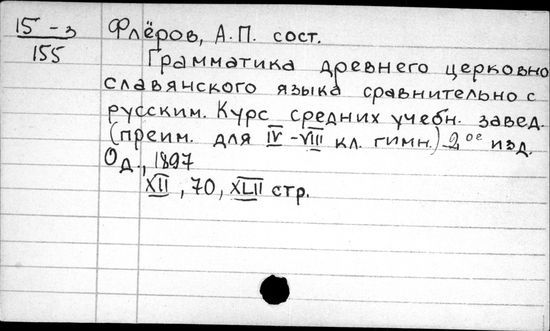 15-3
155
Флёров, А.П. сост.
Грамматика древнего церковно
славянского языка сравнительно с
русским. Курс средних учебн. завед.
(преим. для IV-VIII кл. гимн.) 2ое изд.
Од., 1897
XII, 70, XLII стр.